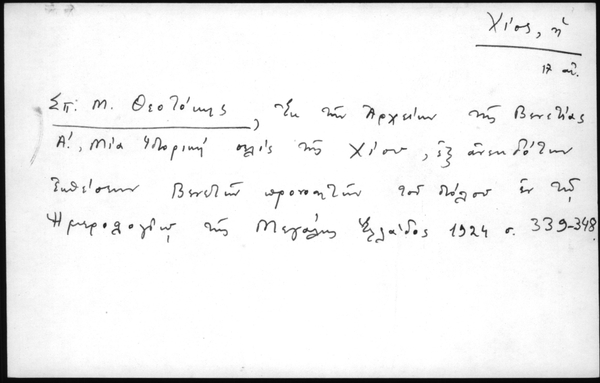 Χίος, ἡ
17 αἰ.
Σπ. Μ. Θεοτόκης, Ἐκ τῶν Ἀρχείων τῆς Βενετίας
Α΄, Μία ἱστορική σελίς τῆς Χίου, ἐξ ἀνεκδότων
ἐκθέσεων Βενετῶν προνοητῶν τοῦ στόλου ἐν τῷ
Ἡμερολογίῳ τῆς Μεγάλης Ἑλλάδος 1924 σ. 339-348